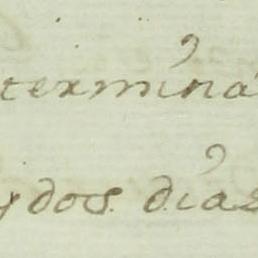 termina
y dos dias